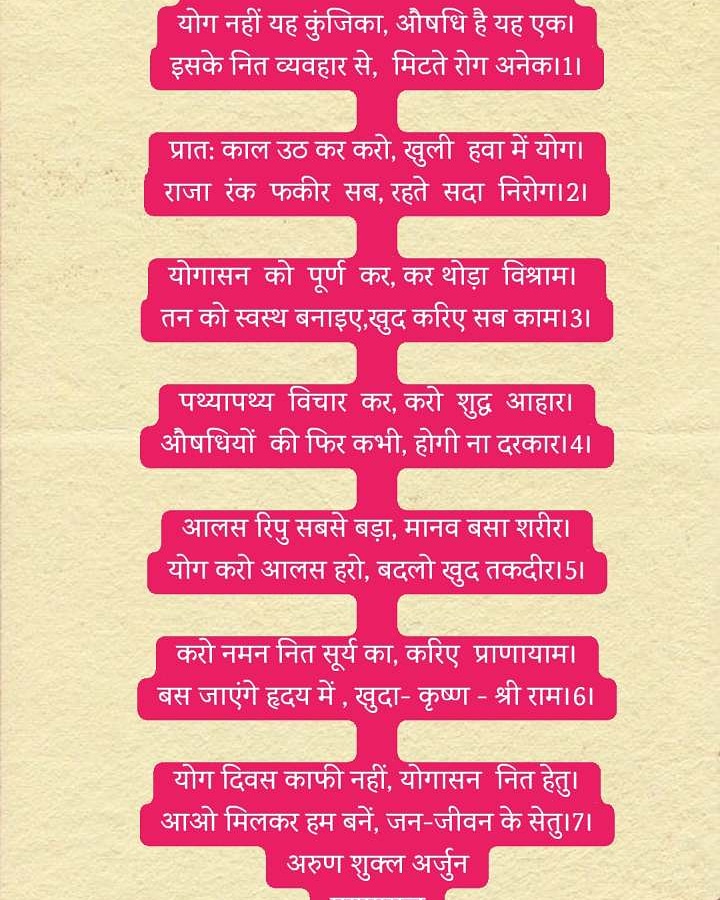 योग नहीं यह कुंजिका, औषधि है यह एक।
इसके नित व्यवहार से, मिटते रोग अनेक।1।
प्रात: काल उठ कर करो, खुली हवा में योग।
राजा रंक फकीर सब, रहते सदा निरोग।2।
योगासन को पूर्ण कर, कर थोड़ा विश्राम।
तन को स्वस्थ बनाइए,खुद करिए सब काम।3।
पथ्यापथ्य विचार कर, करो शुद्ध आहार।
औषधियों की फिर कभी, होगी ना दरकार।4।
आलस रिपु सबसे बड़ा, मानव बसा शरीर।
योग करो आलस हरो, बदलो खुद तकदीर।5।
करो नमन नित सूर्य का, करिए प्राणायाम।
बस जाएंगे हृदय में , खुदा- कृष्ण - श्री राम।6।
योग दिवस काफी नहीं, योगासन नित हेतु।
आओ मिलकर हम बनें, जन-जीवन के सेतु।7।
अरुण शुक्ल अर्जुन